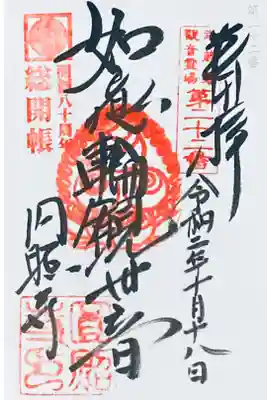 第二十二番
奉拝
武蔵野
観音霊場
第二十二番
令和二年十月十八日
如意輪観世音
開創八十周年
総開帳
円照寺